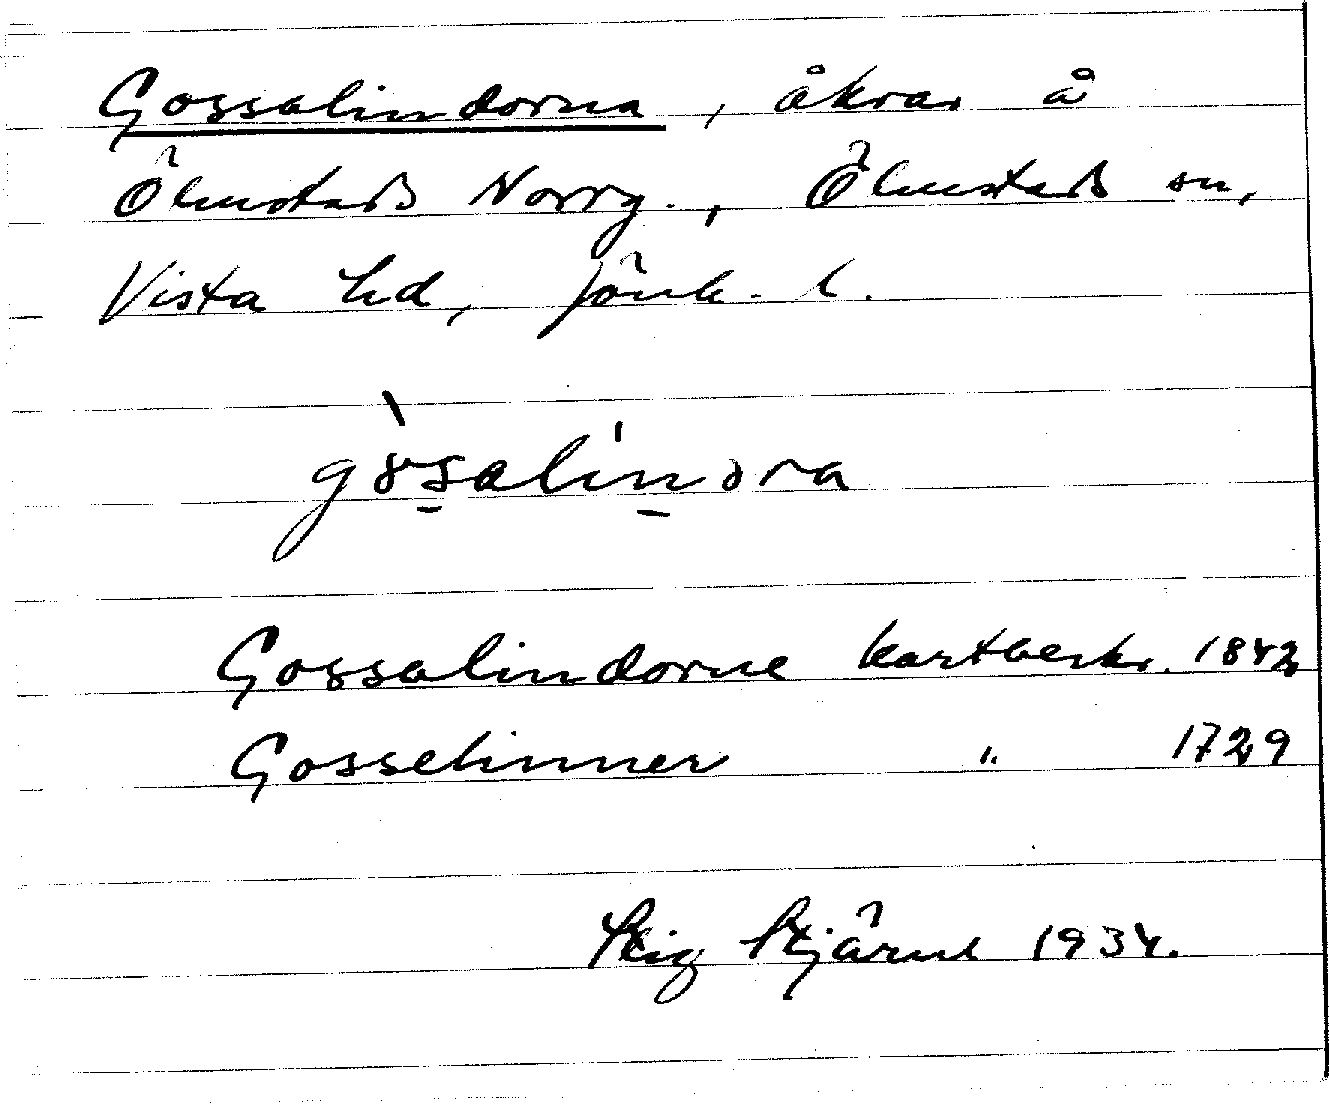 Gossalindorna, åkrar å
Ölmstads Norrg., Ölmstads sn,
Vista hd, Jönk. l.
Gossalindorne kartbeskr. 1842
Gosselinner " 1729
Stig Stjärne 1934.